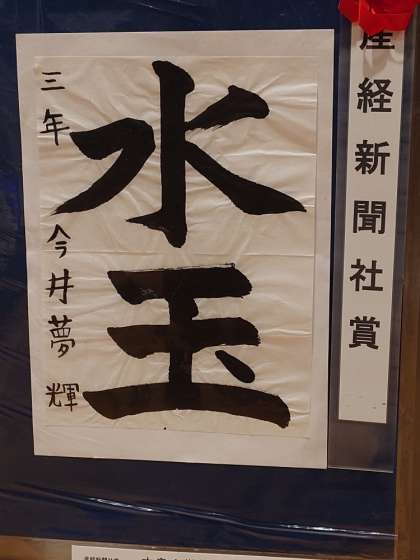 産経新聞社賞
水玉
三年 今井夢輝